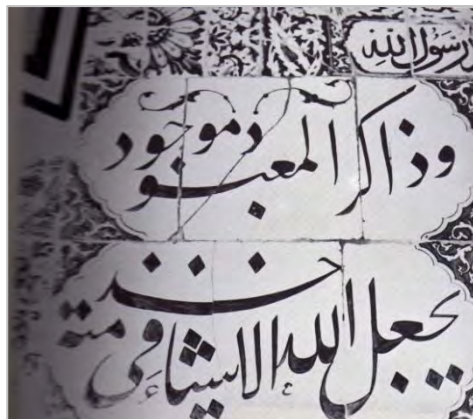 رسول الله
وذاكرا لمعبود موجود
يجعل الله الاشيا في